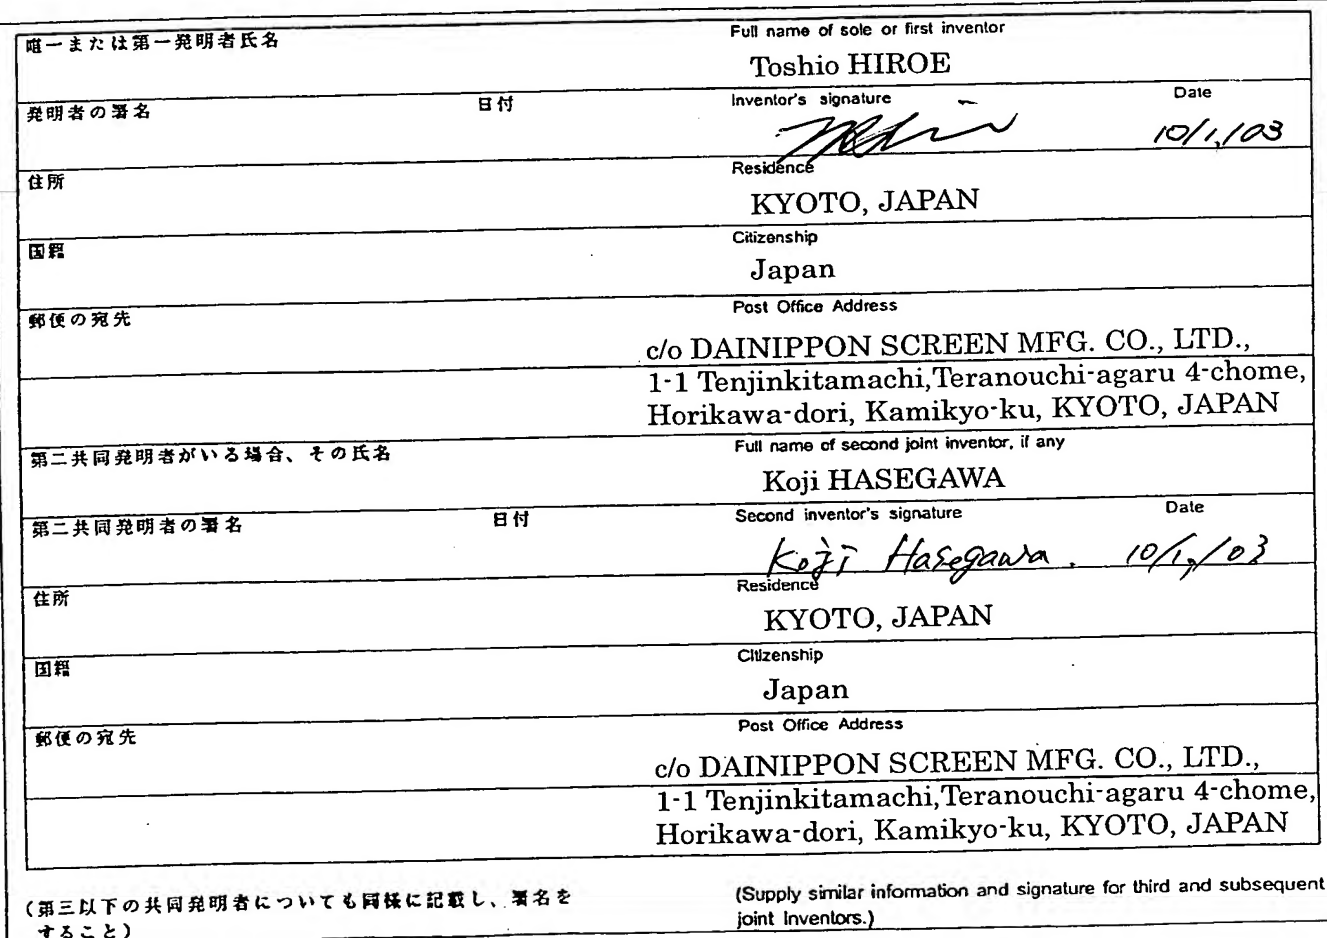 唯一または第一発明者氏名
Full name of sole or first inventor
Toshio HIROE
発明者の署名 日付
Inventor's signature Date
10/1,/03
住所
Residence
KYOTO, JAPAN
国籍
Citizenship
Japan
郵便の宛先
Post Office Address
c/o DAINIPPON SCREEN MFG. CO., LTD.,
1-1 Tenjinkitamachi,Teranouchi-agaru 4-chome,
Horikawa-dori, Kamikyo-ku, KYOTO, JAPAN
第二共同発明者がいる場合、その氏名
Full name of second joint inventor, if any
Koji HASEGAWA
第二共同発明者の署名 日付
Second inventor's signature Date
Koji Hasegawa. 10/1,/03
住所
Residence
KYOTO, JAPAN
国籍
Citizenship
Japan
郵便の宛先
Post Office Address
c/o DAINIPPON SCREEN MFG. CO., LTD.,
1-1 Tenjinkitamachi,Teranouchi-agaru 4-chome,
Horikawa-dori, Kamikyo-ku, KYOTO, JAPAN
(第三以下の共同発明者についても同様に記載し、署名を
すること)
(Supply similar information and signature for third and subsequent
joint Inventors.)